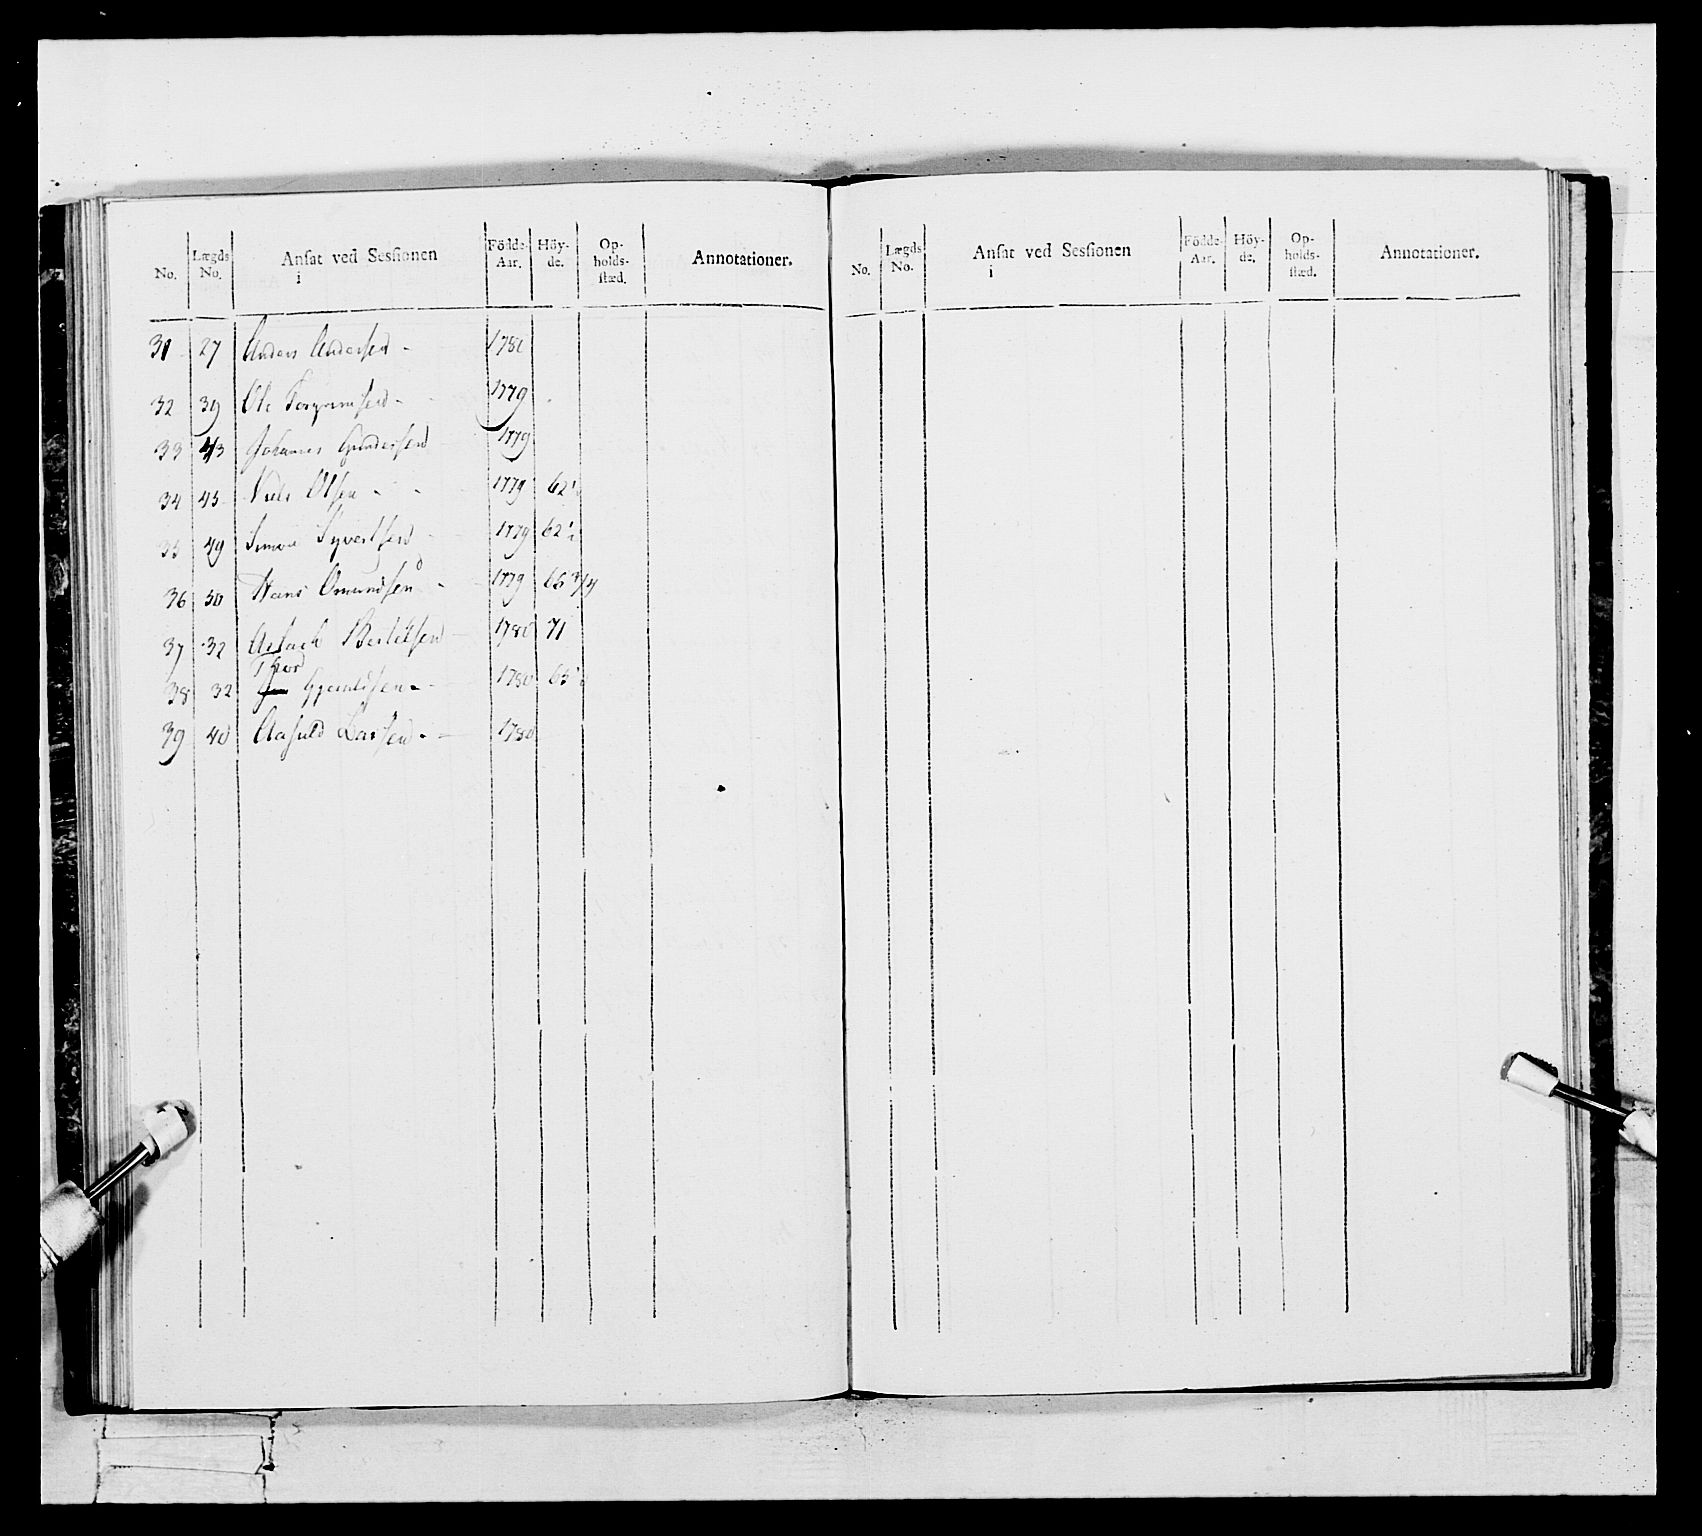 No. Lægds No. Ansat ved Sessionen i Födde-Aar. Höy-de. Op-holds-stæd. Annotationer.
31 27 Anders Andersen - 1781
32 39 Ole Torgrimsen - 1779
33 43 Johannes Gundersen 1779
34 45 Niels Olsen - - 1779 62 1/2
35 49 Simon Syvertsen 1779 62 1/2
36 50 Hans Omundsen - 1779 65 3/4
37 32 Aslach Bertelsen 1780 71
Thor
38 32 Gjeruldsen - 1780 65
39 40 Aasuld Larsen - 1780
No. Lægds No. Ansat ved Sessionen i Födde-Aar. Höy-de. Op-holds-stæd. Annotationer.